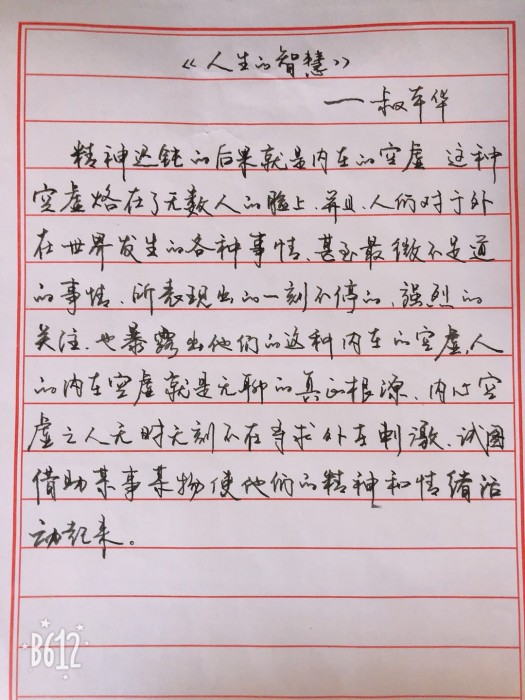 《人生的智慧》
——叔本华
精神迟钝的后果就是内在的空虚 这种
空虚烙在了无数人的脸上.并且.人们对于外
在世界发生的各种事情、甚至最微不足道
的事情、所表现出的一刻不停的、强烈的
关注.也暴露出他们的这种内在的空虚,人
的内在空虚就是无聊的真正根源、内心空
虚之人无时无刻不在寻求外在刺激、试图
借助某事某物使他们的精神和情绪活
动起来。
B612